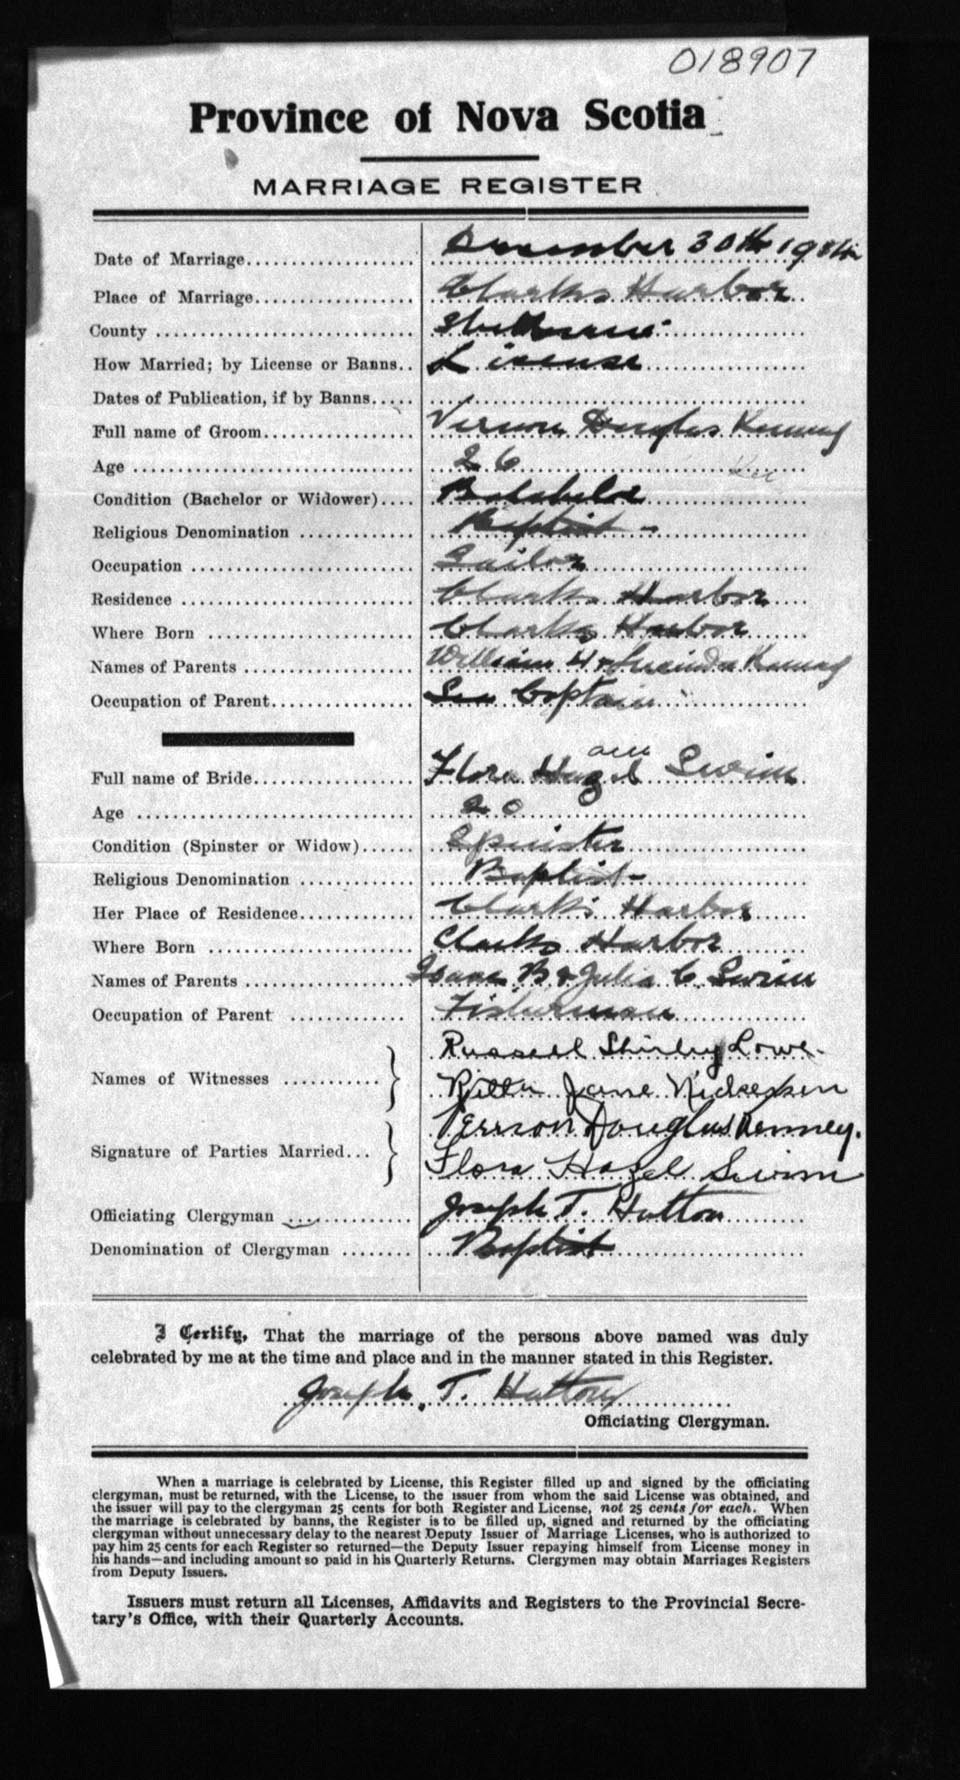 018907
Province of Nova Scotia
MARRIAGE REGISTER
Date of Marriage December 30th
Place of Marriage Clarks Harbor
County Shelburne
How Married; by License or Banns License
Dates of Publication, if by Banns
Full name of Groom Vernon Douglas Kenney
Age 26
Condition (Bachelor or Widower) Batchelor
Religious Denomination Baptist
Occupation Sailor
Residence Clarks Harbor
Where Born Clarks Harbor
Names of Parents William H & Lucinda Kenney
Occupation of Parent Sea Captain
Full name of Bride Flora Hazel Swim
Age 20
Condition (Spinster or Widow) Spinster
Religious Denomination Baptist
Her Place of Residence Clark's Harbor
Where Born Clarks Harbor
Names of Parents Isaac B & Julia C Swim
Occupation of Parent Fisherman
Names of Witnesses Russell Shirley Lowe
Jane Nickerson
Signature of Parties Married Vernon Douglas Kenney.
Flora Hazel Swim
Officiating Clergyman Joseph T. Hutton
Denomination of Clergyman Baptist
I Certify, That the marriage of the persons above named was duly
celebrated by me at the time and place and in the manner stated in this Register.
Joseph T. Hutton
Officiating Clergyman.
When a marriage is celebrated by License, this Register filled up and signed by the officiating
clergyman, must be returned, with the License, to the issuer from whom the said License was obtained, and
the issuer will pay to the clergyman 25 cents for both Register and License, not 25 cents for each. When
the marriage is celebrated by banns, the Register is to be filled up, signed and returned by the officiating
clergyman without unnecessary delay to the nearest Deputy Issuer of Marriage Licenses, who is authorized to
pay him 25 cents for each Register so returned—the Deputy Issuer repaying himself from License money in
his hands—and including amount so paid in his Quarterly Returns. Clergymen may obtain Marriages Registers
from Deputy Issuers.
Issuers must return all Licenses, Affidavits and Registers to the Provincial Secre-
tary's Office, with their Quarterly Accounts.